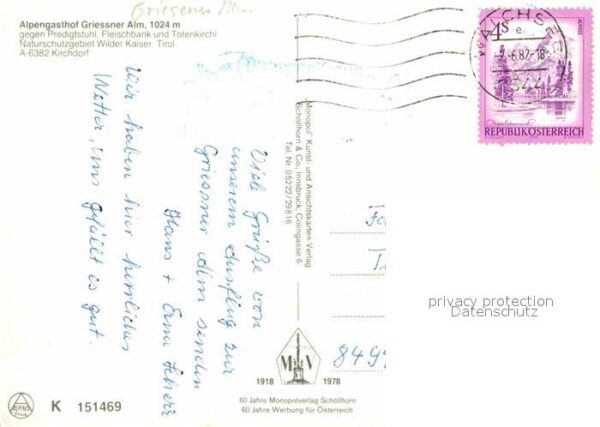 Griesener Alm
Alpengasthof Griessner Alm, 1024 m
gegen Predigtstuhl, Fleischbank und Totenkirchl
Naturschutzgebiet Wilder Kaiser, Tirol
A-6382 Kirchdorf
Viele Grüße von
unserem Ausflug zur
Griessner Alm senden
Hans + Erna Scherr
Wir haben hier herrliches
Wetter, uns gefällt es gut.
"Monopol" Kunst- und Ansichtskarten-Verlag
Schöllhorn & Co, Innsbruck, Colingasse 6
Tel. Nr. 05222/29816
WALCHSEE
6344
4 S
REPUBLIK ÖSTERREICH
privacy protection
Datenschutz
849
M V
1918 1978
60 Jahre Monopolverlag Schöllhorn
60 Jahre Werbung für Österreich
ALPINA
K 151469